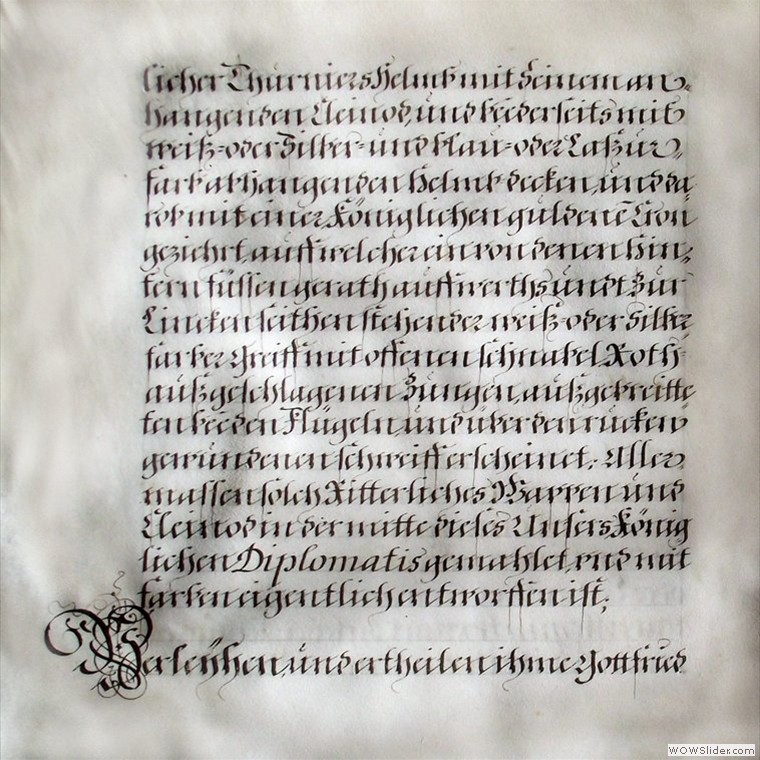 licher Thurniers Helmb mit seinem an-
hangenden Cleinod, und beederseits mit
weiß- oder Silber- und blau- oder Laßur-
farb abhangenden Helmb-decken, und da
rob mit einer Königlichen guldenē Cron
geziehrt, auff welcher ein von denen hin-
tern füssen gerath auffwerths und Zur
Lincken seithen stehender weiß- oder Silber
farber Greiff mit offenen schnabel, Roth-
außgeschlagenen Zungen, außgebreitte
ten beeden Flügeln, und über den rucken
gewundenen schweiff erscheinet; Aller
massen solch Ritterliches Wappen und
Cleinod in der mitte dieses Unsers König
lichen Diplomatis gemahlet, und mit
farben eigentlich entworffen ist;
Verleÿhen, und ertheilen ihme Gottfried
WOWSlider.com